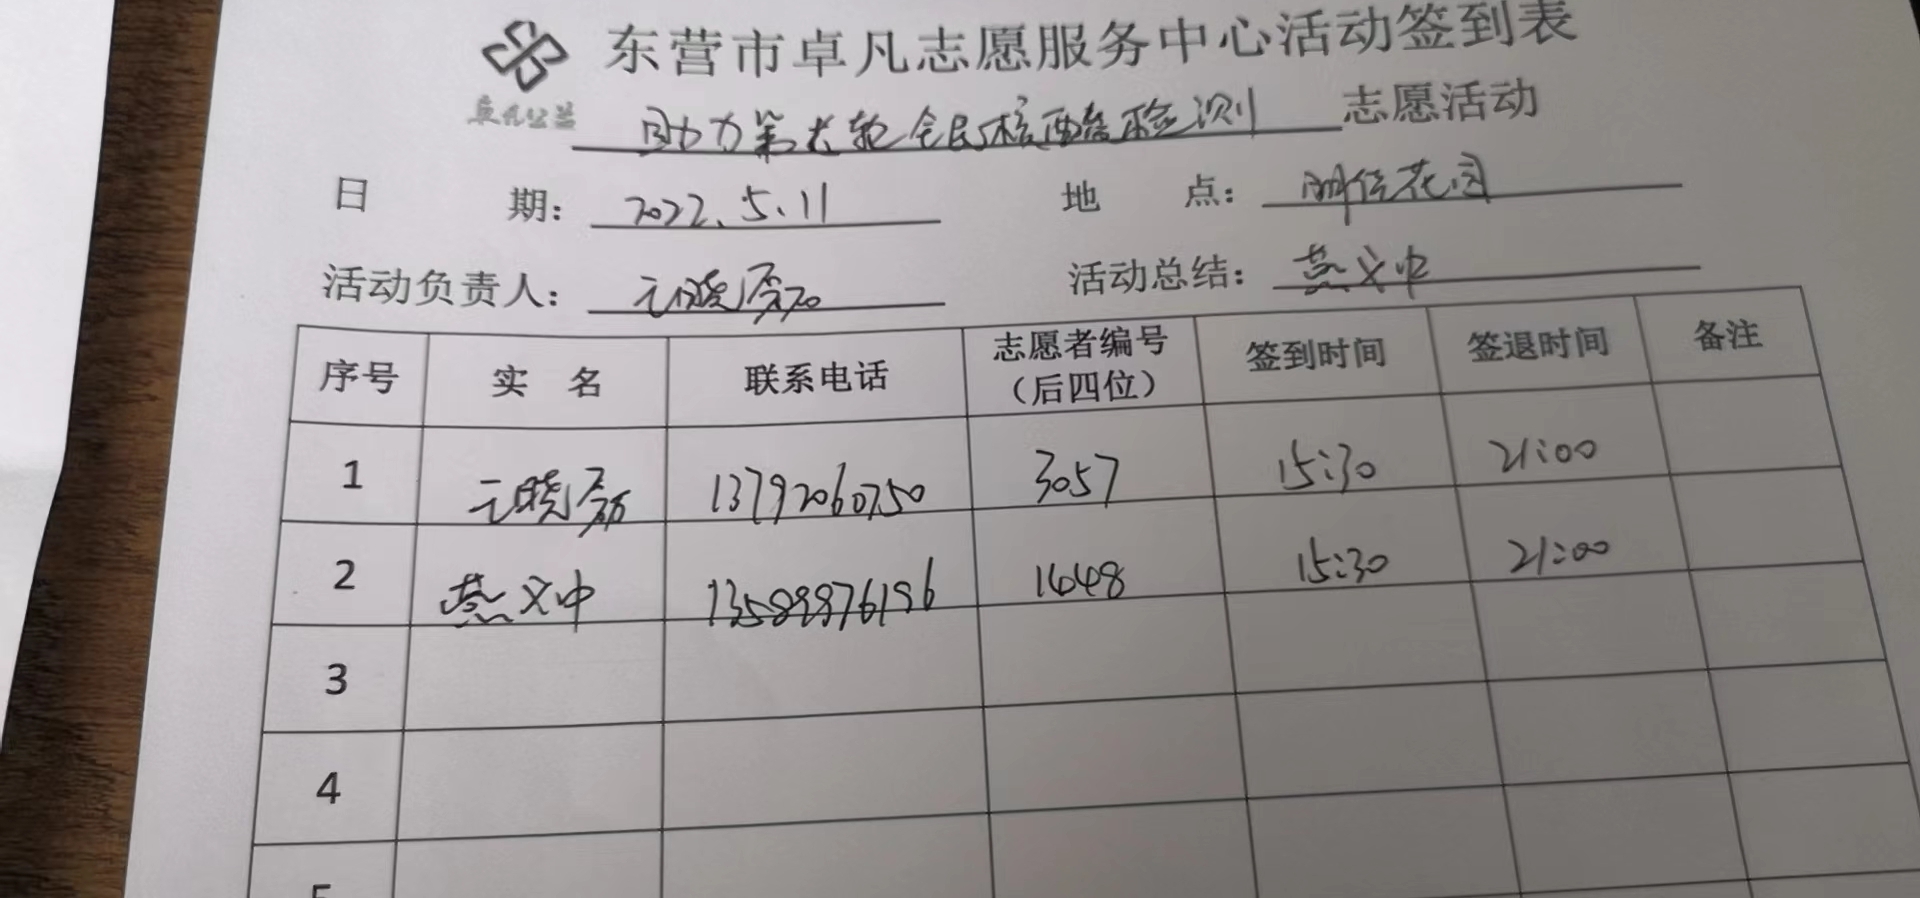 东营市卓凡志愿服务中心活动签到表
卓凡公益
助力第 轮全民核酸检测 志愿活动
日 期： 2022.5.11 地 点： 花园
活动负责人： 元晓 活动总结： 燕义中
序号 实 名 联系电话 志愿者编号（后四位） 签到时间 签退时间 备注
1 元晓 13792060750 3057 15:30 21:00
2 燕义中 13589976196 1648 15:30 21:00
3
4